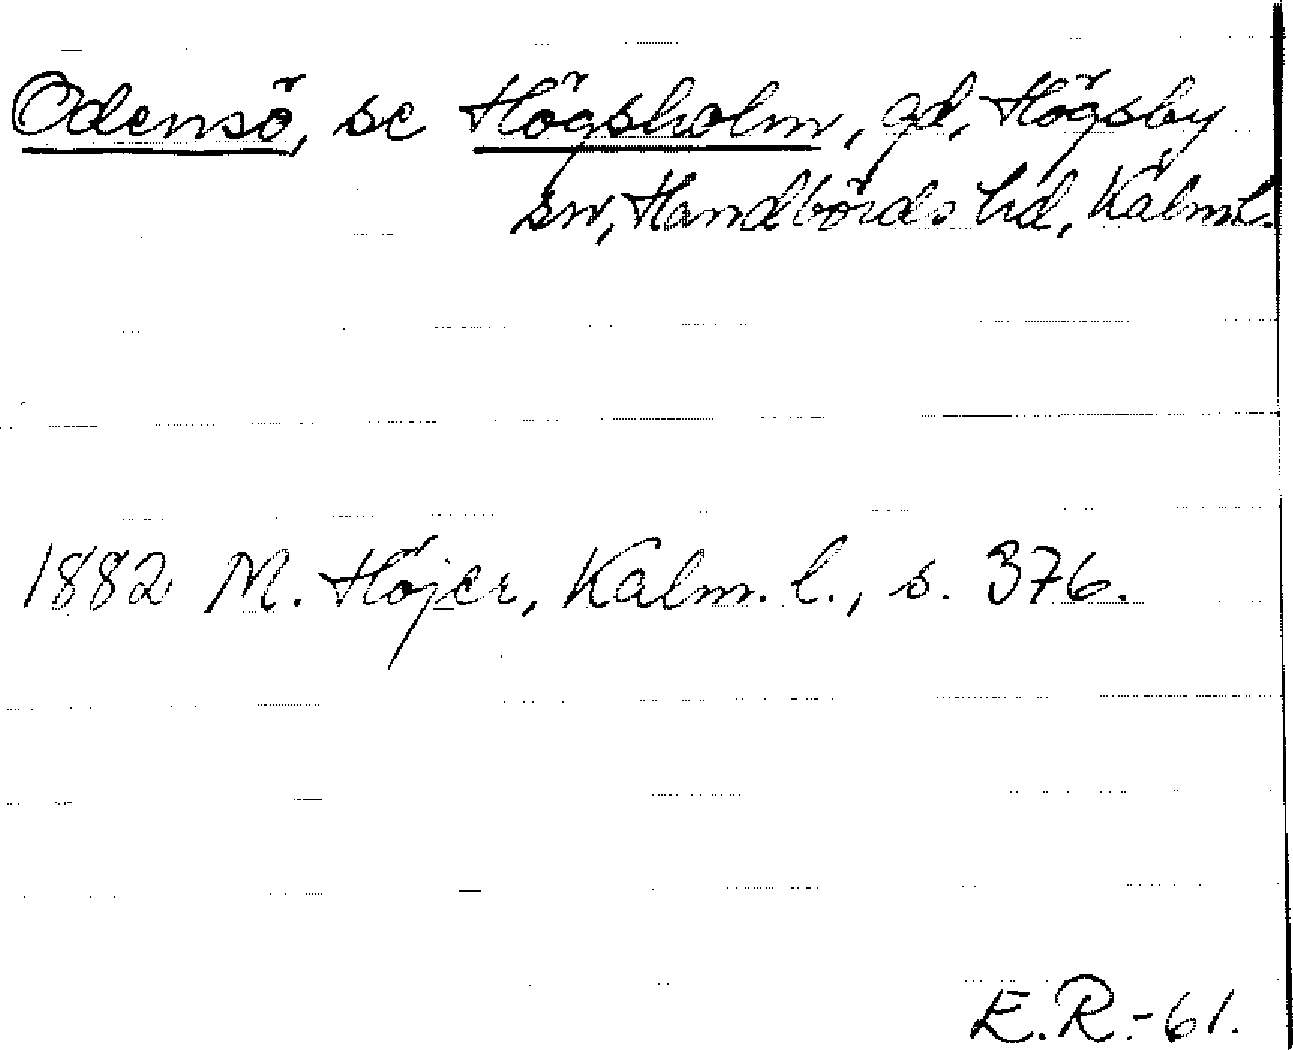 Odensö, se Högsholm, gd, Högsby
sn, Handbörds hd, Kalm.l.
1882 M. Höjer, Kalm. l., s. 376.
E.R.-61.